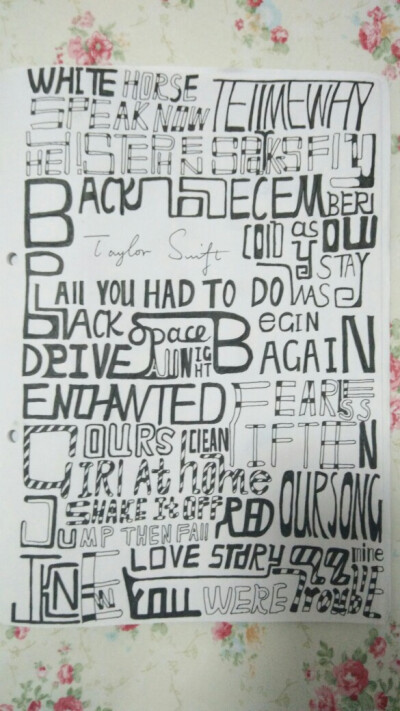 WHITE HORSE TELL ME WHY
SPEAK NOW
HEY! STEPHEN SPARKS FLY
BACK TO DECEMBER
Taylor Swift COLD AS YOU
STAY
ALL YOU HAD TO DO WAS
BLACK Space BEGIN AGAIN
DRIVE ALL NIGHT
ENCHANTED FEARLESS
OURS CLEAN FIFTEEN
GIRL At home
SHAKE It OFF RED OUR SONG
JUMP THEN FALL
LOVE STORY 22 mine
I KNEW YOU WERE TROUBLE